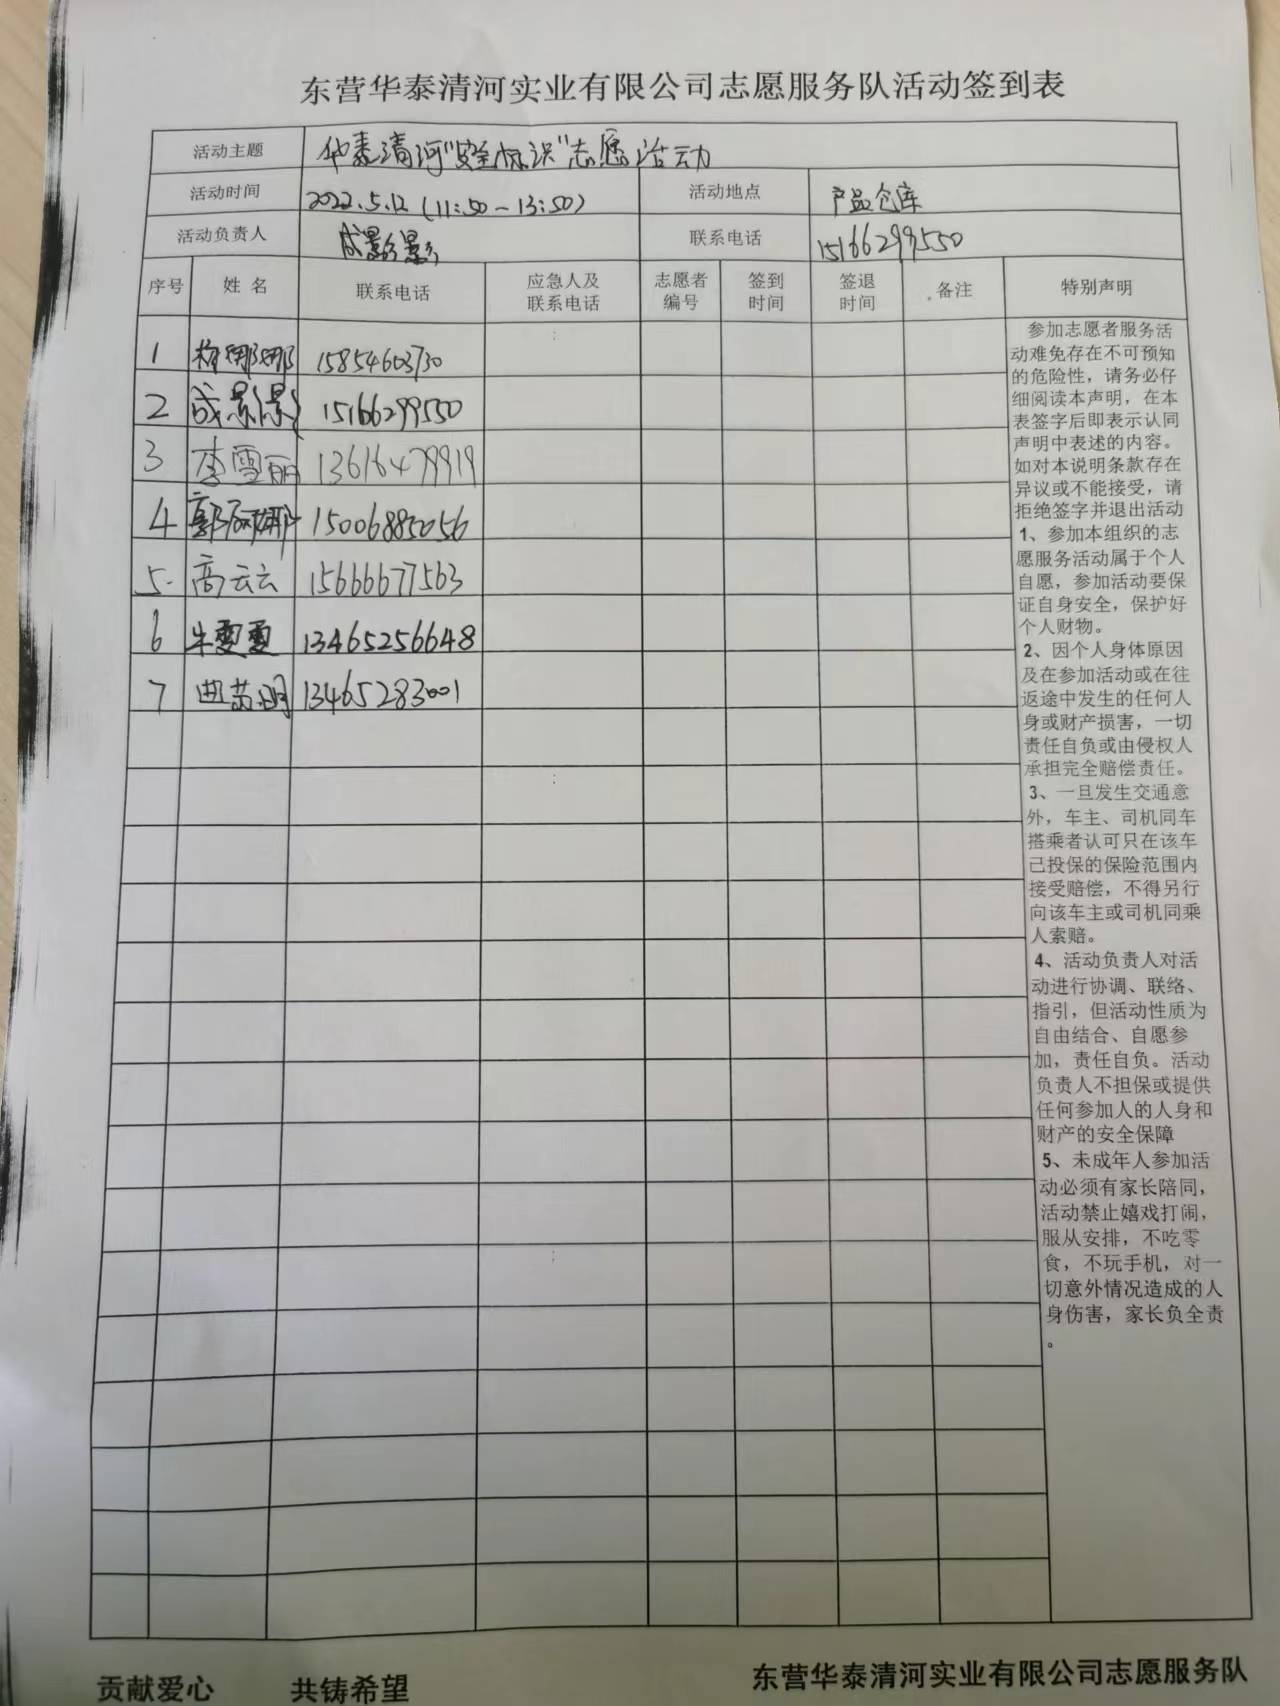 东营华泰清河实业有限公司志愿服务队活动签到表
活动主题 华泰清河"安全标识"志愿活动
活动时间 2022.5.12 (11:50-13:50) 活动地点 产品仓库
活动负责人 成影影 联系电话 15166299550
序号 姓名 联系电话 应急人及联系电话 志愿者编号 签到时间 签退时间 备注 特别声明
1 娜娜 15854603730
2 成影影 15166299550
3 李雪丽 13616479919
4 郭阿娜 15006885056
5. 高云云 15666677563
6 牛雯雯 13465256648
7 13465283001
参加志愿者服务活
动难免存在不可预知
的危险性，请务必仔
细阅读本声明，在本
表签字后即表示认同
声明中表述的内容。
如对本说明条款存在
异议或不能接受，请
拒绝签字并退出活动
1、参加本组织的志
愿服务活动属于个人
自愿，参加活动要保
证自身安全，保护好
个人财物。
2、因个人身体原因
及在参加活动或在往
返途中发生的任何人
身或财产损害，一切
责任自负或由侵权人
承担完全赔偿责任。
3、一旦发生交通意
外，车主、司机同车
搭乘者认可只在该车
己投保的保险范围内
接受赔偿，不得另行
向该车主或司机同乘
人索赔。
4、活动负责人对活
动进行协调、联络、
指引，但活动性质为
自由结合、自愿参
加，责任自负。活动
负责人不担保或提供
任何参加人的人身和
财产的安全保障
5、未成年人参加活
动必须有家长陪同，
活动禁止嬉戏打闹，
服从安排，不吃零
食，不玩手机，对一
切意外情况造成的人
身伤害，家长负全责
。
贡献爱心 共铸希望 东营华泰清河实业有限公司志愿服务队